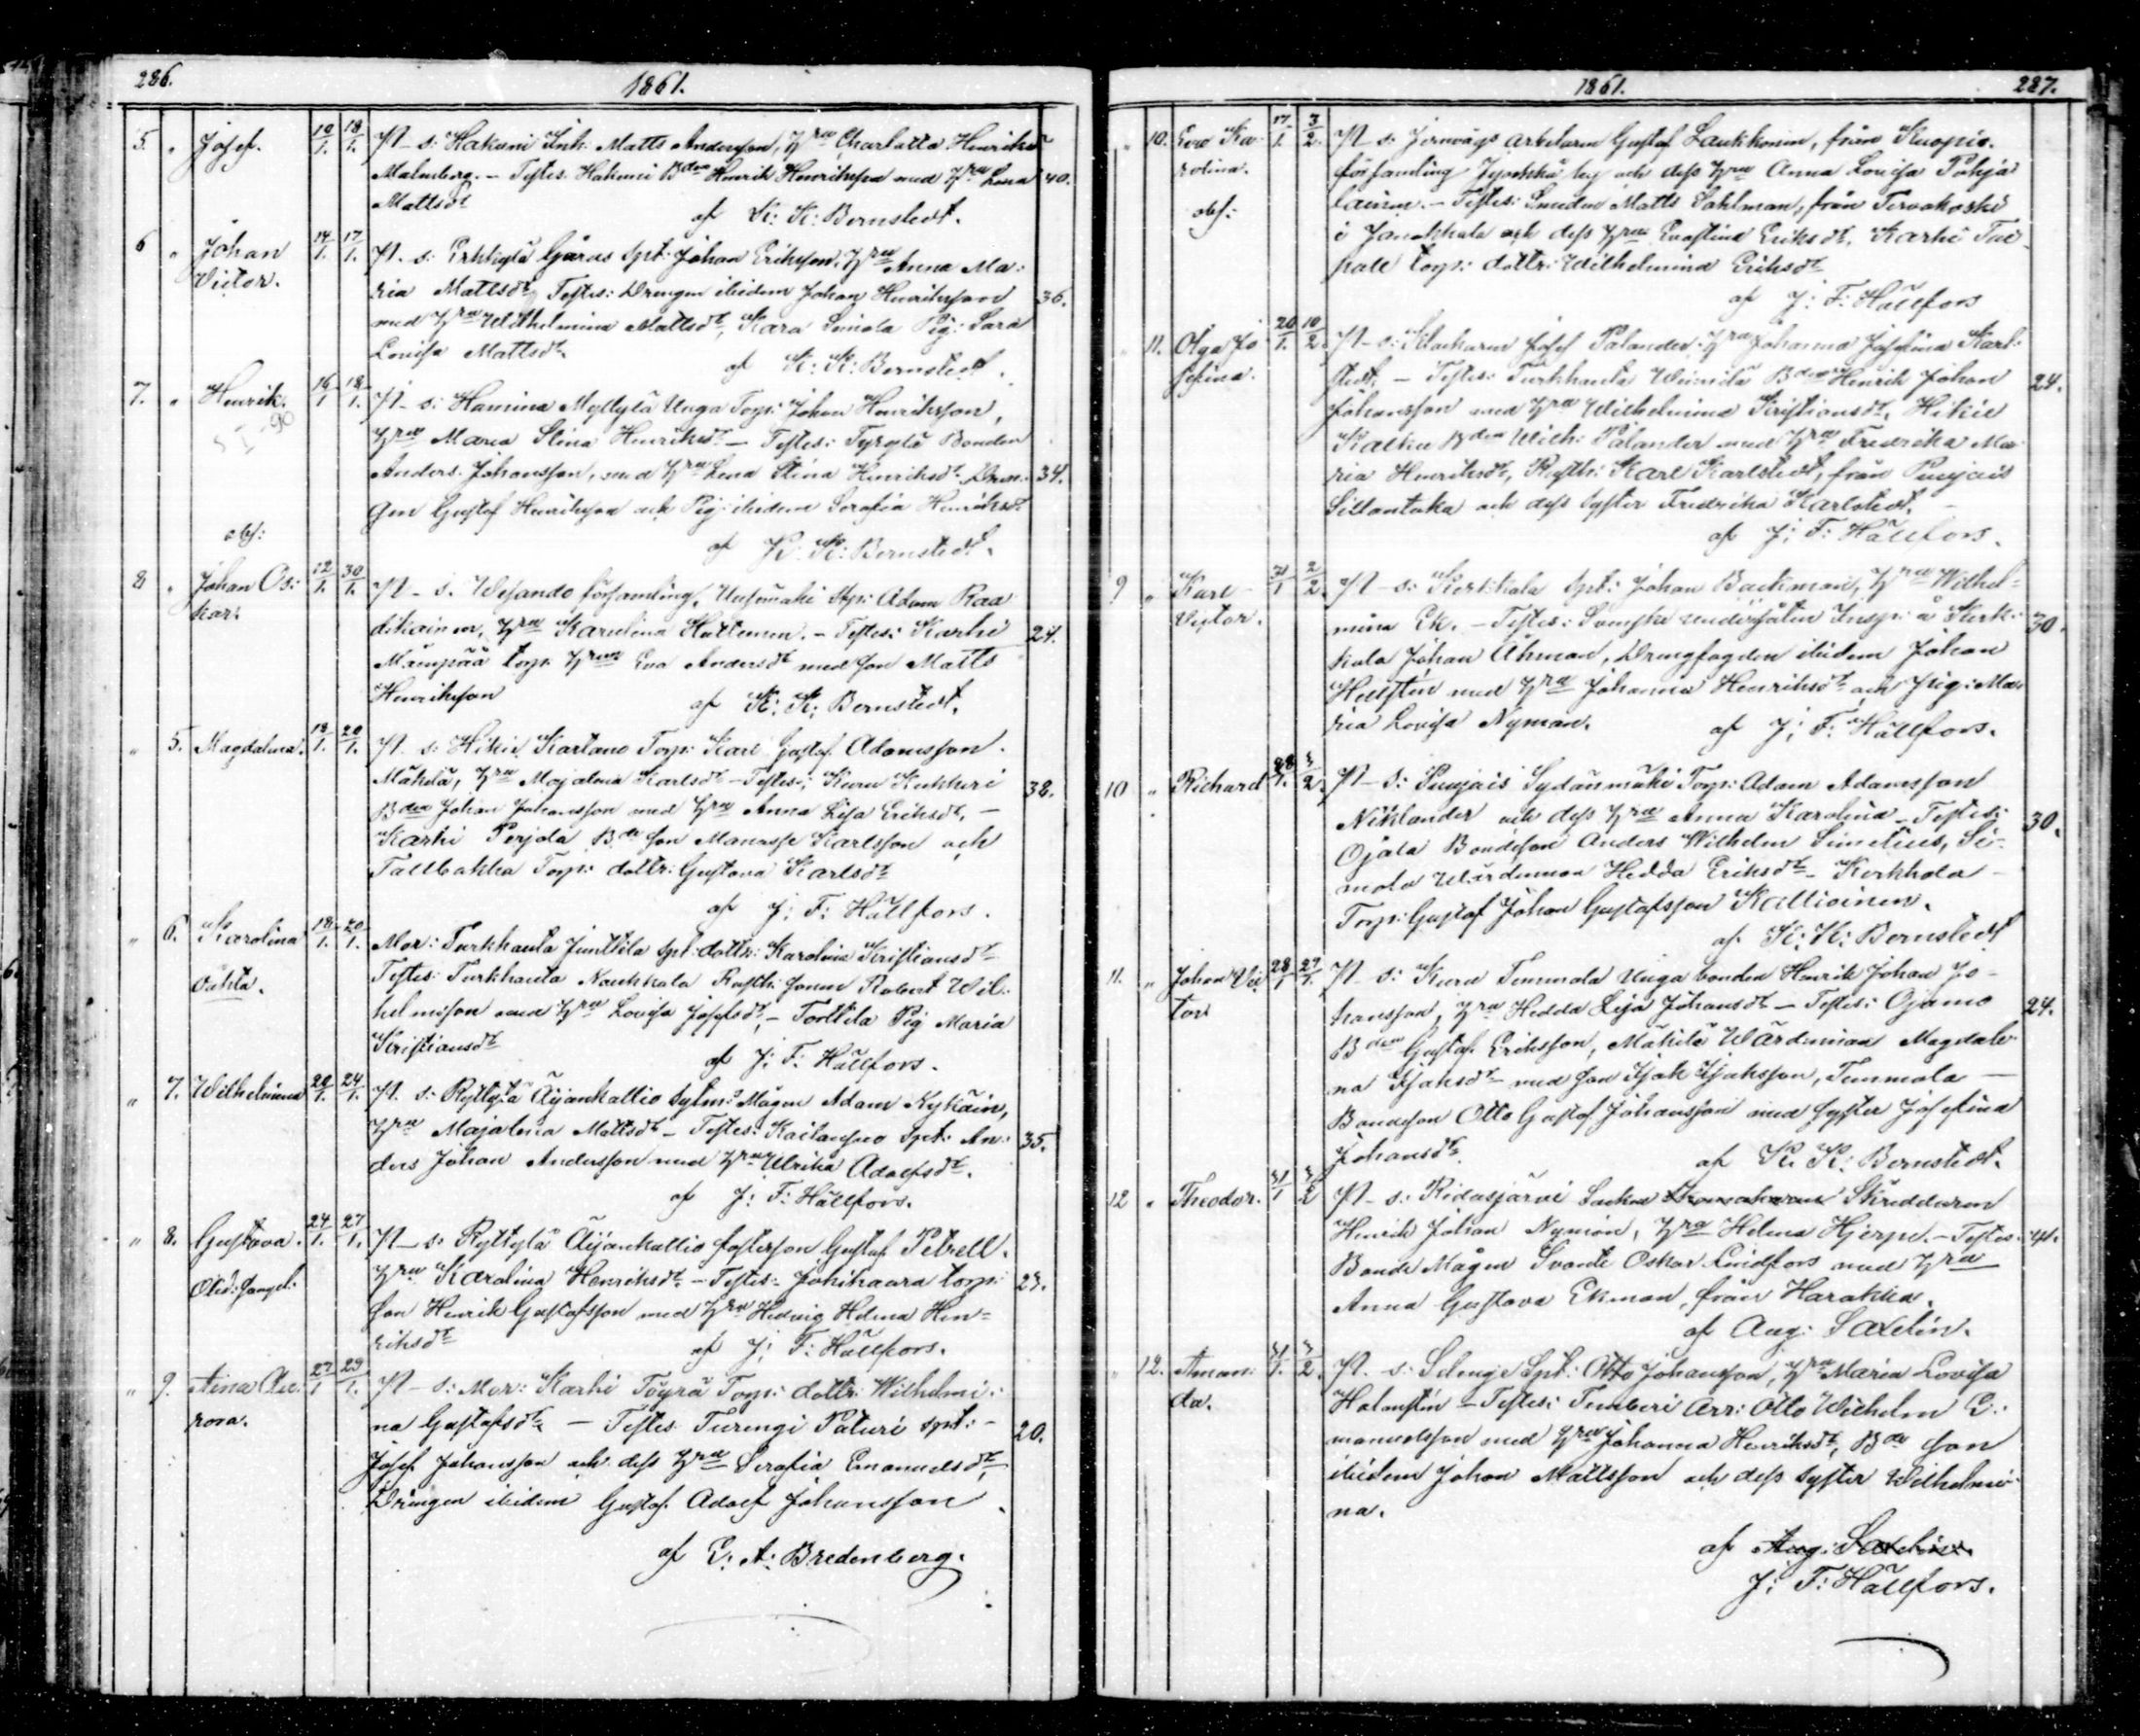 286.
1861.
5. " Josef. 10/1. 18/1. Pt. s: Hakuni Inh. Matts Andersson, Hru Charlotta Henriks
Malmberg. – Testes. Hakuni Bden Henrik Henriksson med Hru Lena 40.
Mattsdr
af K: K: Bernstedt.
6 " Johan 14/1. 17/1. Pt. s: Erkkylä Gårds Spt: Johan Eriksson, Hru Anna Ma-
Victor. ria Mattsdr, Testes: Drengen ibidem Johan Henriksson 36.
med Hru Wilhelmina Mattsdr, Kara Simola Pig: Sara
Lovisa Mattsdr.
af K: K: Bernstedt.
7. " Henrik. 16/1 18/1. Pt. s: Hamina Myllylä Unga Torp: Johan Henriksson,
Hru Maria Stina Henriksdr – Testes: Tyrylä Bonden
Anders Johansson, med Hru Lena Stina Henriksdr Dren- 34.
gen Gustaf Henriksson och Pig: ibidem Serafia Henriksdr
obs:
af K. K: Bernstedt.
8 " Johan Os- 12/1. 30/1. Pt. s. Wesando församling, Stp: Adam Raa
kar. tikainen, Hru Karolina Huttunen. – Testes: Karhi 24.
Mäenpää torp. Hrun Eva Andersdr med son Matts
Henriksson
af K: K: Bernstedt.
" 5. Magdalena. 18/1. 20/1. Pt. s: Hikiä Kartano Torp: Karl Gustaf Adamsson
Mäkelä, Hru Majalena Karlsdr – Testes: Kuru Kukkeri
Bden Johan Johansson med Hru Anna Lisa Eriksdr, – 38.
Karhi Perjola Bde son Manasse Karlsson och
Tallbakka Torp: dottr: Gustava Karlsdr
af J: F: Hällfors.
" 6. Karolina 18/1. 20/1. Mor: Turkhauta Junttila Spt: dottr: Karolina Kristiansdr
Oäkta. Testes: Turkhauta Naukkala Rusth: sonen Robert Wil-
helmsson med Hru Lovisa Josefsdr, – Torttila Pig Maria
Kristiansdr
af J: F: Hällfors.
" 7. Wilhelmina 20/1. 24/1. Pt. s: Ryttylä Äijänkallio Sytn: Mågen Adam Nykäin,
Hru Majalena Mattsdr – Testes: Spt: An- 35.
ders Johan Andersson med Hru Ulrika Adolfsdr.
af J: F: Hällfors.
" 8. Gustava. 24/1. 27/1. Pt. s: Ryttylä Äijänkallio fosterson Gustaf Petrell.
Hru Karolina Henriksdr – Testes: Jokihaara torp: 23.
son Henrik Gustafsson med Hru Hedvig Helena Hen-
riksdr
af J: F: Hällfors.
" 9. Aina Au- 27/1 29/1. Pt. s: Mor: Karhi Töyrä Torp: dottr: Wilhelmi-
rora. na Gustafsdr – Testes Turengi Paturi Spt: – 20.
Josef Johansson och dess Hru Serafia Emanuelsdr,
Drängen ibidem Gustaf Adolf Johansson
af C: A: Bredenberg.
1861.
287.
" 10. Eva Ka- 17/1. 3/2. Pt. s: Jernvägs arbetaren Gustaf Laukkonen, från Kuopio
rolina. församling by och dess Hru Anna Lovisa Pohja-
obs: lainen. – Testes: Smeden Matts Sahlman, från Tervakoski
i Janakkala och dess Hru Evastina Eriksdr, Karhi
torp: dottr: Wilhelmina Eriksdr
af J: F: Hällfors
" 11. Olga Jo- 20/1. 10/2. Pt. s: Klockaren Josef Palander, Hru Johanna Josefina Karl-
sefina. stedt. – Testes: Turkhauta Bden Henrik Johan 24.
Johansson med Hru Wilhelmina Kristiansdr, Hikiä
Bden Wilh: Palander med Hru Fredrika Ma-
ria Henriksdr, Rusth: Karl Karlstedt, från Puujais
Sillantaka och dess syster Fredrika Karlstedt. –
af J: F: Hällfors.
9 " Karl 31/1 2/2. Pt. s: Kerkkala Spt: Johan Backman, Hru Wilhel-
Victor. mina Ek. – Testes: Svenska undersåten Insp: å Kerk- 30.
kala Johan Åhman, Drengfogden ibidem Johan
Hellstén med Hru Johanna Henriksdr och Pig: Ma-
ria Lovisa Nyman.
af J: F: Hällfors.
10 " Richard 28/1. 3/2. Pt. s: Puujais Sydänmäki Torp: Adam Adamsson
Niklander och dess Hru Anna Karolina – Testes: 30.
Ojala Bondeson Anders Wilhelm Simelius, Si-
mola Wärdinnan Hedda Eriksdr – Kerkkola –
Torp: Gustaf Johan Gustafsson Kallioinen.
af K: K: Bernstedt
11. " Johan Vic- 28/1 29/1. Pt. s: Kuru Temmola Unga bonden Henrik Johan Jo-
tor hansson, Hru Hedda Lisa Johansdr – Testes: Ojamo 24.
Bden Gustaf Eriksson, Mäkilä Wärdinnan Magdale-
na Isaksdr med son Isak Isaksson, Temmola –
Bondeson Otto Gustaf Johansson med syster Josefina
Johansdr.
af K. K: Bernstedt.
12 " Theodor. 31/1 3/2 Pt. s: Ridasjärvi Skreddaren
Henrik Johan Nyman, Hru Helena Hjerpe. – Testes: 41.
Bonde Mågen Svante Oskar Lindfors med Hru
Anna Gustava Ekman, från Harakka.
af Aug: Saxelin.
" 12. Aman- 31/1. 3/2. Pt. s: Selenge Spt: Otto Johansson, Hru Maria Lovisa
da. Holmstén – Testes: Temberi Arr: Otto Wilhelm E-
manuelsson med Hru Johanna Henriksdr, Bde son
ibidem Johan Mattsson och dess syster Wilhelmi-
na.
af Aug: Saxelin.
J: F: Hällfors.